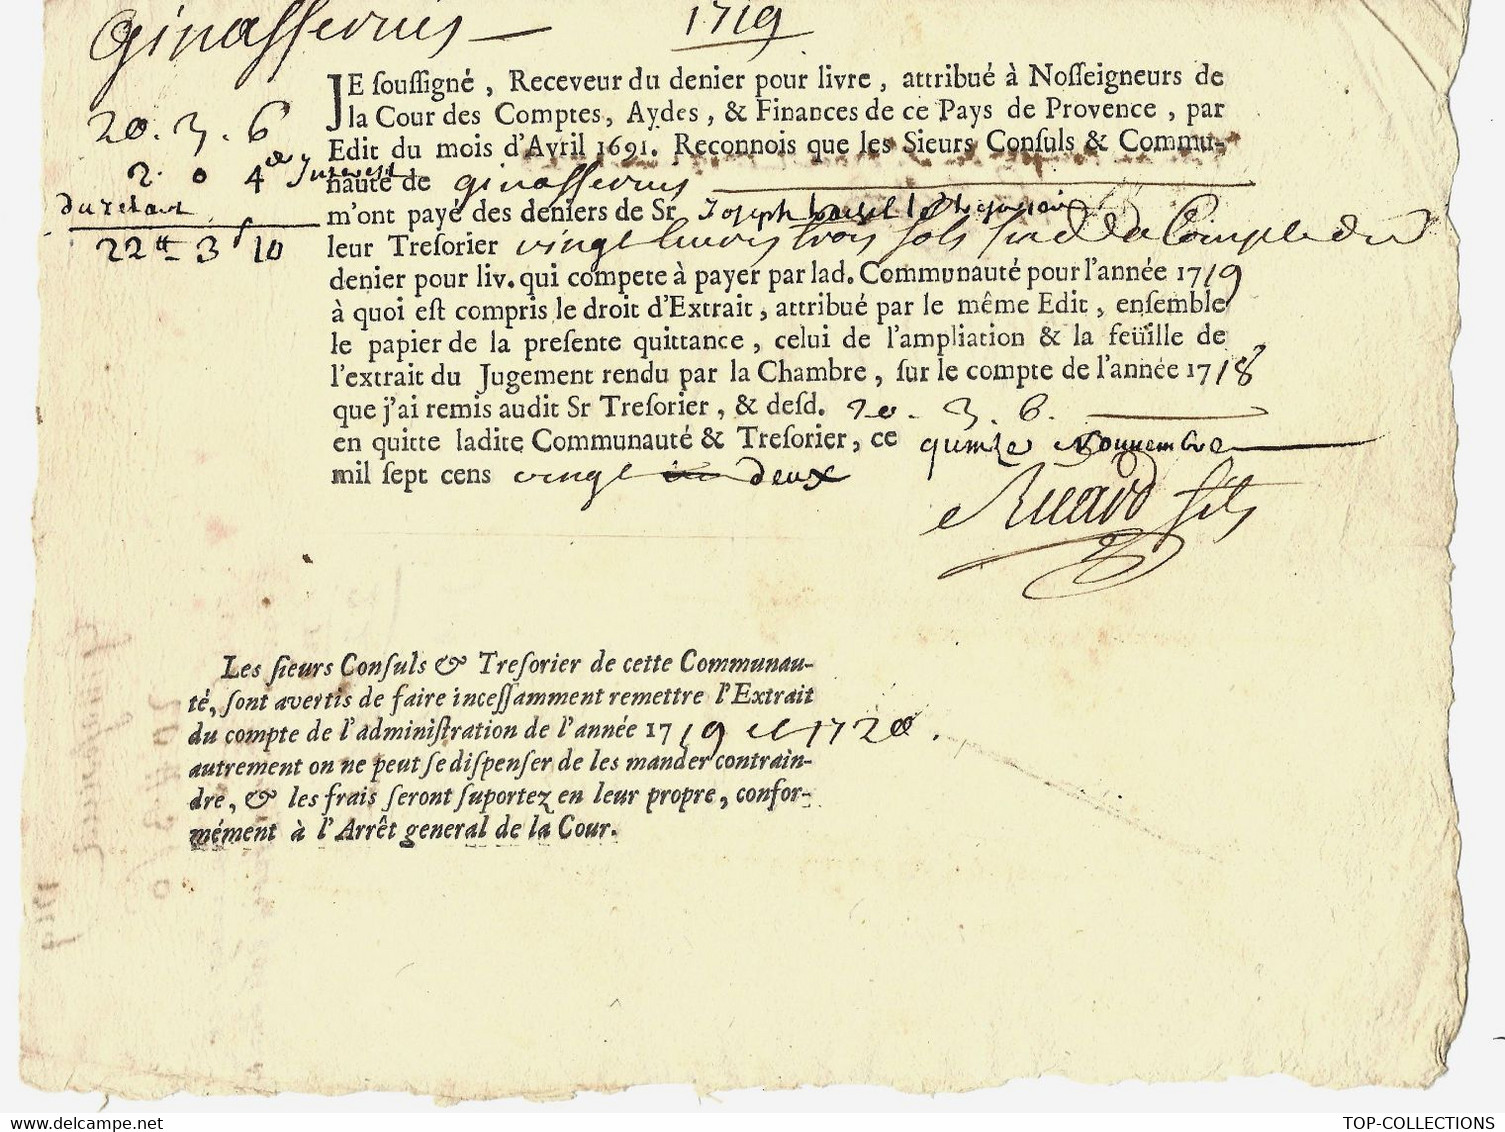 Ginasservis — 1719
20. 3. 6
2. 0 4 d'Interest
du retard
22 ₶ 3 ſ 10
JE ſouſſigné, Receveur du denier pour livre, attribué à Noſſeigneurs de
la Cour des Comptes, Aydes, & Finances de ce Pays de Provence, par
Edit du mois d'Avril 1691. Reconnois que les Sieurs Conſuls & Commu-
nauté de Ginasservis
m'ont payé des deniers de Sr Joseph
leur Treſorier vingt livres trois sols six d du Compte du
denier pour liv. qui compete à payer par lad. Communauté pour l'année 1719
à quoi eſt compris le droit d'Extrait, attribué par le même Edit, enſemble
le papier de la preſente quittance, celui de l'ampliation & la feüille de
l'extrait du Jugement rendu par la Chambre, ſur le compte de l'année 1718
que j'ai remis audit Sr Treſorier, & deſd. 20. 3. 6.
en quitte ladite Communauté & Treſorier, ce quinze Nouuembre
mil ſept cens vingt deux
Ricard fils
Les ſieurs Conſuls & Treſorier de cette Communau-
té, ſont avertis de faire inceſſamment remettre l'Extrait
du compte de l'adminiſtration de l'année 1719 et 1720.
autrement on ne peut ſe diſpenſer de les mander contrain-
dre, & les frais ſeront ſuportez en leur propre, confor-
mément à l'Arrêt general de la Cour.
TOP-COLLECTIONS